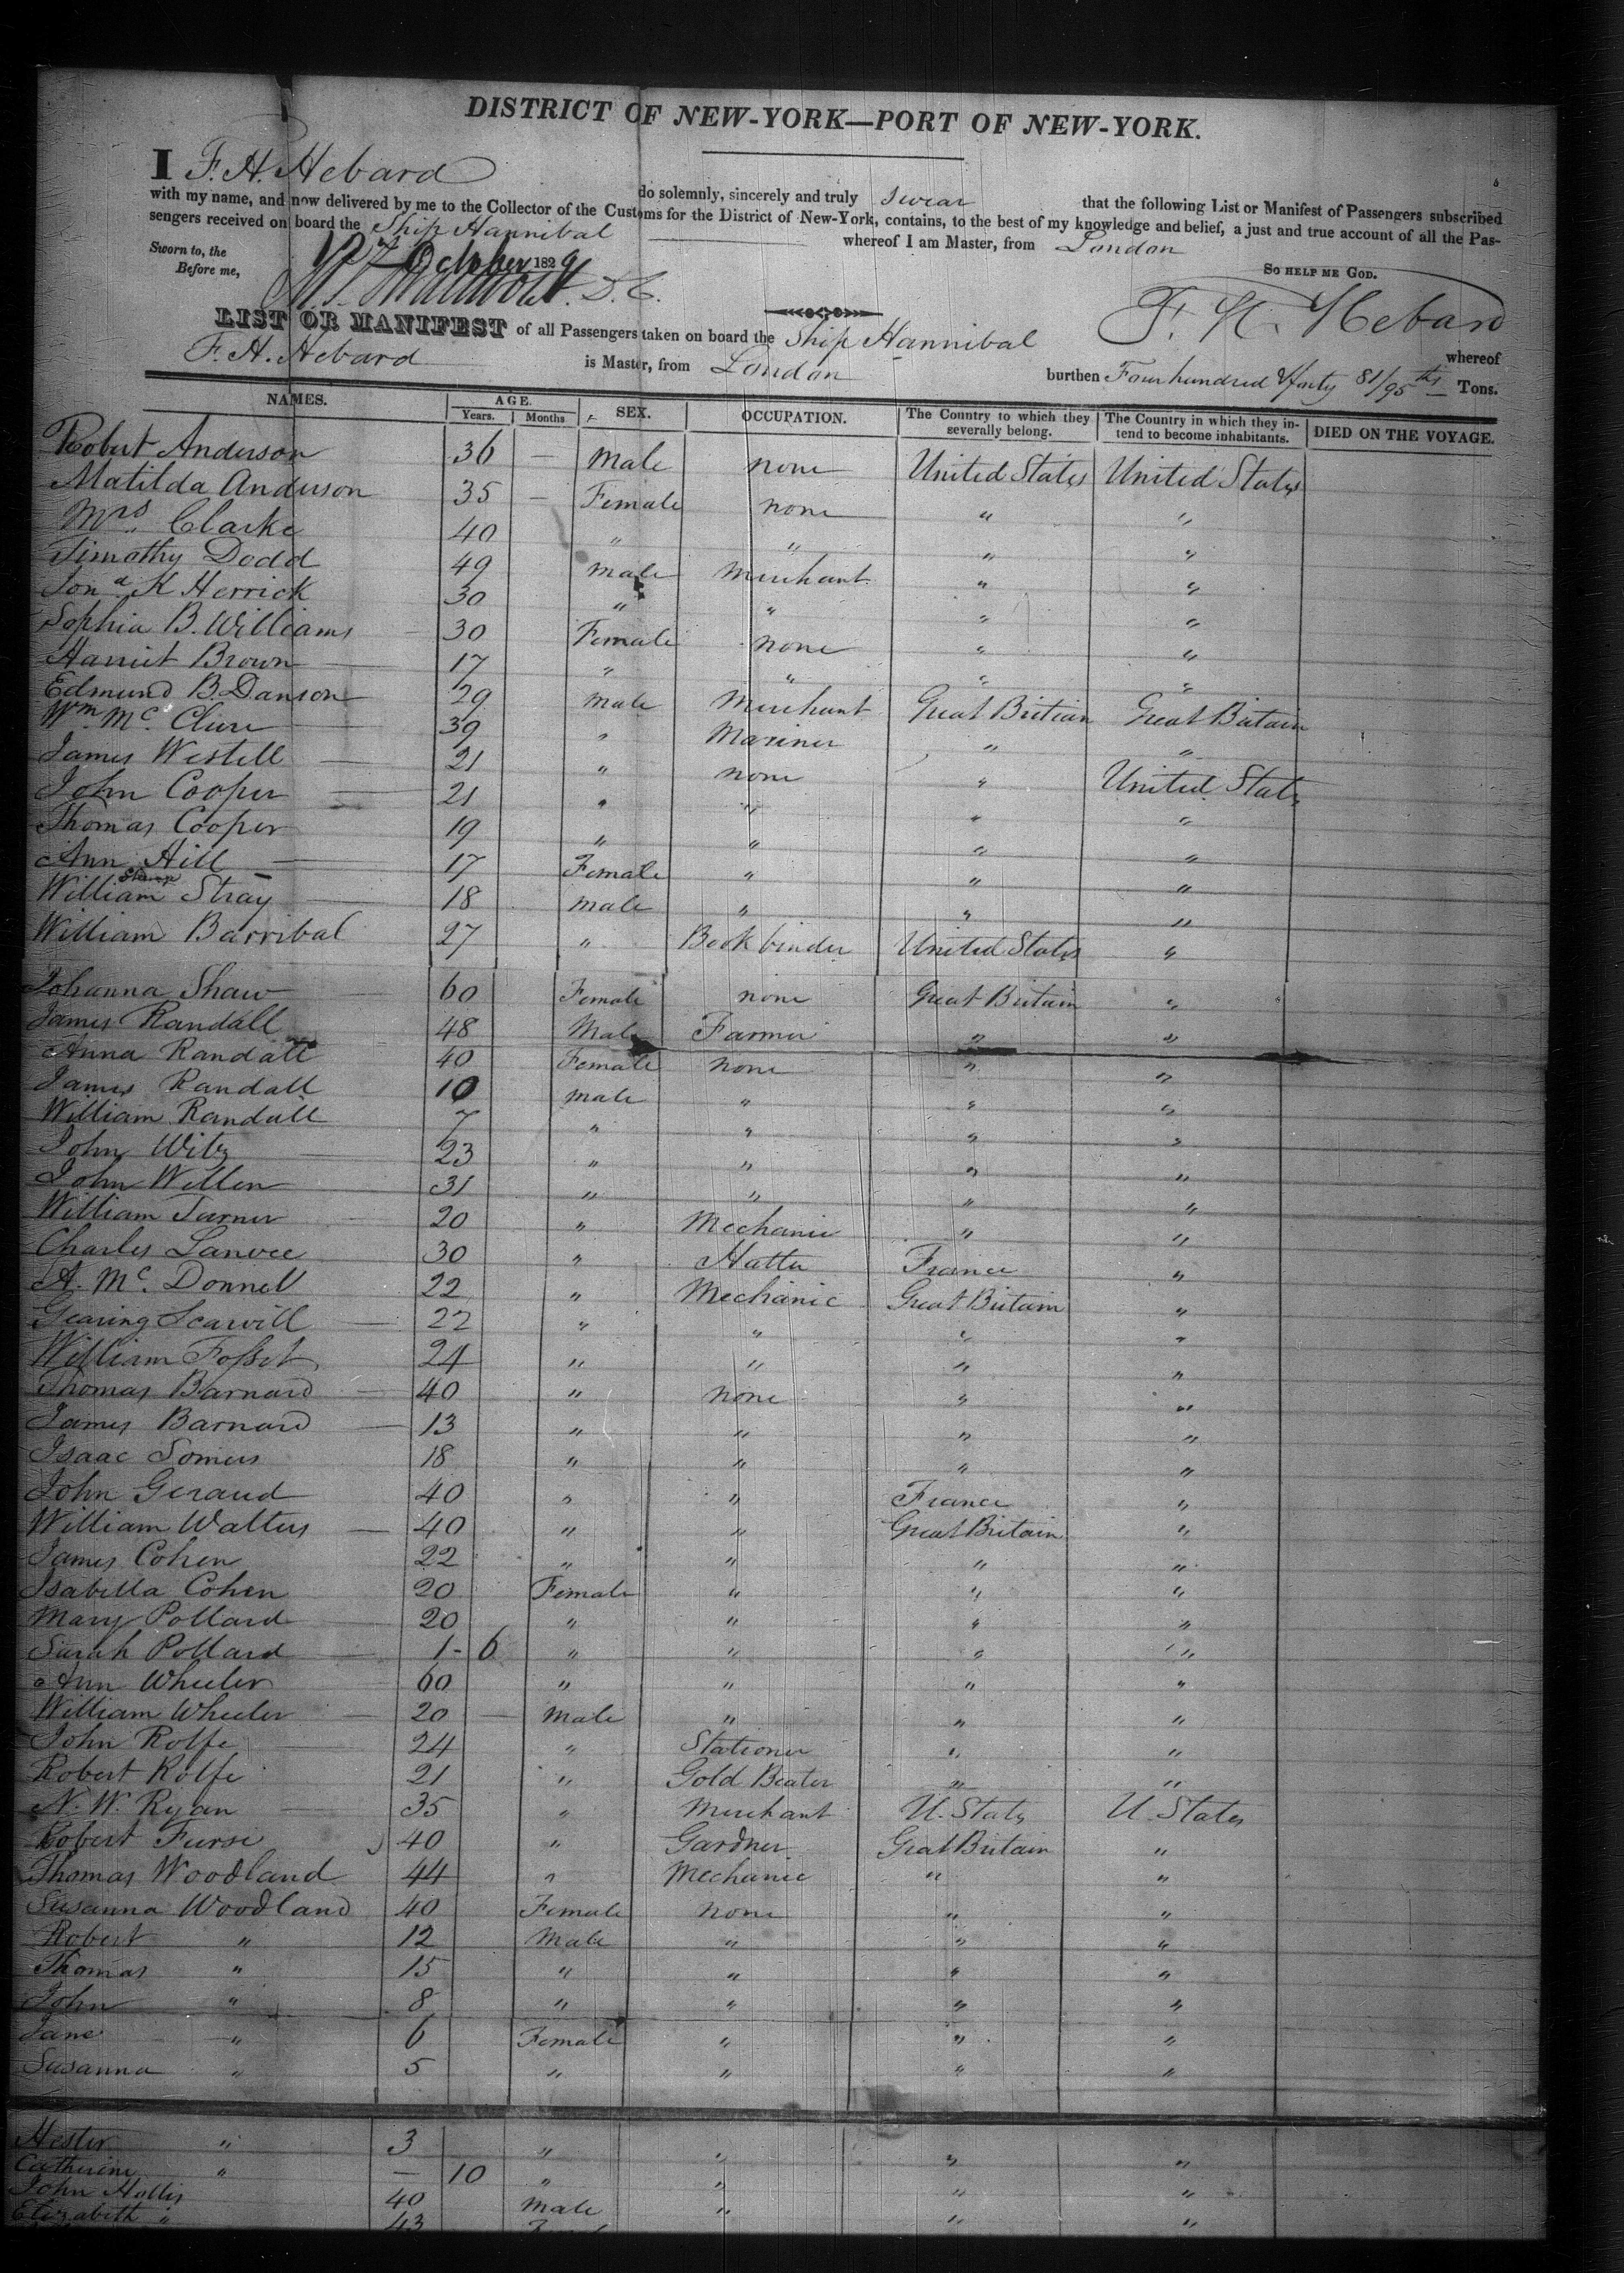 DISTRICT OF NEW-YORK—PORT OF NEW-YORK.
I F. H. Hebard do solemnly, sincerely and truly swear that the following List or Manifest of Passengers subscribed
with my name, and now delivered by me to the Collector of the Customs for the District of New-York, contains, to the best of my knowledge and belief, a just and true account of all the Pas-
sengers received on board the Ship Hannibal whereof I am Master, from London
Sworn to, the October 1829
Before me, D. C.
SO HELP ME GOD.
F. H. Hebard
LIST OR MANIFEST of all Passengers taken on board the Ship Hannibal whereof
F. H. Hebard is Master, from London burthen Four hundred & forty 81/95ths Tons.
NAMES. AGE. Years. Months SEX. OCCUPATION. The Country to which they severally belong. The Country in which they in-tend to become inhabitants. DIED ON THE VOYAGE.
Robert Anderson 36 — Male none United States United States
Matilda Anderson 35 — Female none " "
Mrs Clarke 40 " " " "
Timothy Dodd 49 male Merchant " "
Jona K Herrick 30 " " " "
Sophia B. Williams 30 Female none " "
Harriet Brown 17 " " " "
Edmund B. Danson 29 male Merchant Great Britian Great Britain
Wm Mc. Clure 39 " Mariner " "
James Westell 21 " none " United States
John Cooper 21 " " " "
Thomas Cooper 19 " " " "
Ann Hill 17 Female " " "
William Stray 18 male " " "
William Barribal 27 " Book binder United States "
Johanna Shaw 60 Female none Great Britain "
James Randall 48 Male Farmer " "
Anna Randall 40 Female none " "
James Randall 10 male " " "
William Randall 7 " " " "
John 23 " " " "
John Willen 31 " " " "
William Turner 20 " Mechanic " "
Charles 30 " Hatter France "
A. Mc. Donnell 22 " Mechanic Great Britain "
22 " " " "
William Fosset 24 " " " "
Thomas Barnard 40 " none " "
James Barnard 13 " " " "
Isaac Somers 18 " " " "
John Geraud 40 " " France "
William Walters 40 " " Great Britain "
James Cohen 22 " " " "
Isabella Cohen 20 Female " " "
Mary Pollard 20 " " " "
Sarah Pollard 1 - 6 " " " "
Ann Wheeler 60 " " " "
William Wheeler 20 — male " " "
John Rolfe 24 " Stationer " "
Robert Rolfe 21 " Gold Beater " "
N. W. Ryan 35 " Merchant U. States U. States
Robert Furse 40 " Gardner Great Britain "
Thomas Woodland 44 " Mechanic " "
Susanna Woodland 40 Female none " "
Robert " 12 Male " " "
Thomas " 15 " " " "
John " 8 " " " "
Jane " 6 Female " " "
Susanna " 5 " " " "
Hester " 3 " " " "
Catherine " — 10 " " " "
John Hollis 40 male " " "
Elizabeth " 43 " "